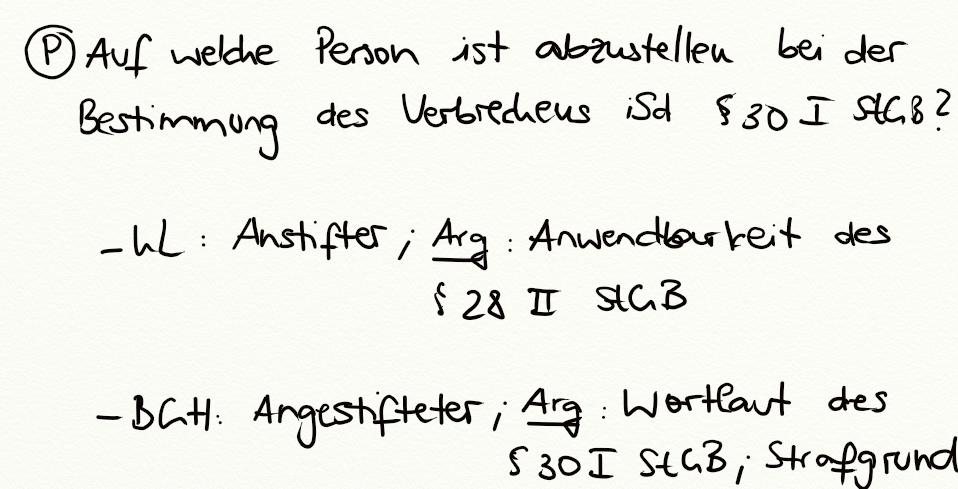 (P) Auf welche Person ist abzustellen bei der
Bestimmung des Verbrechens iSd § 30 I StGB?
- hL : Anstifter ; Arg : Anwendbarkeit des
§ 28 II StGB
- BGH : Angestifteter ; Arg : Wortlaut des
§ 30 I StGB ; Strafgrund